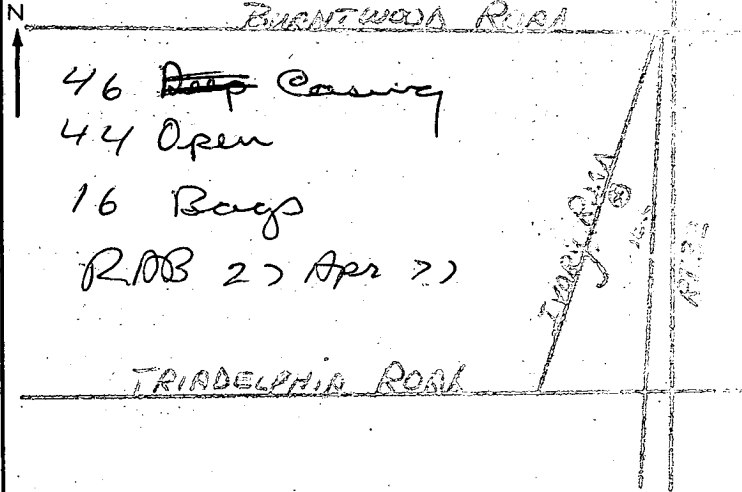 N
BURNTWOOD ROAD
46 Deep Casing
44 Open
16 Bags
RAB 27 Apr 77
IVORY ROAD
RT. 32
TRIADELPHIA ROAD